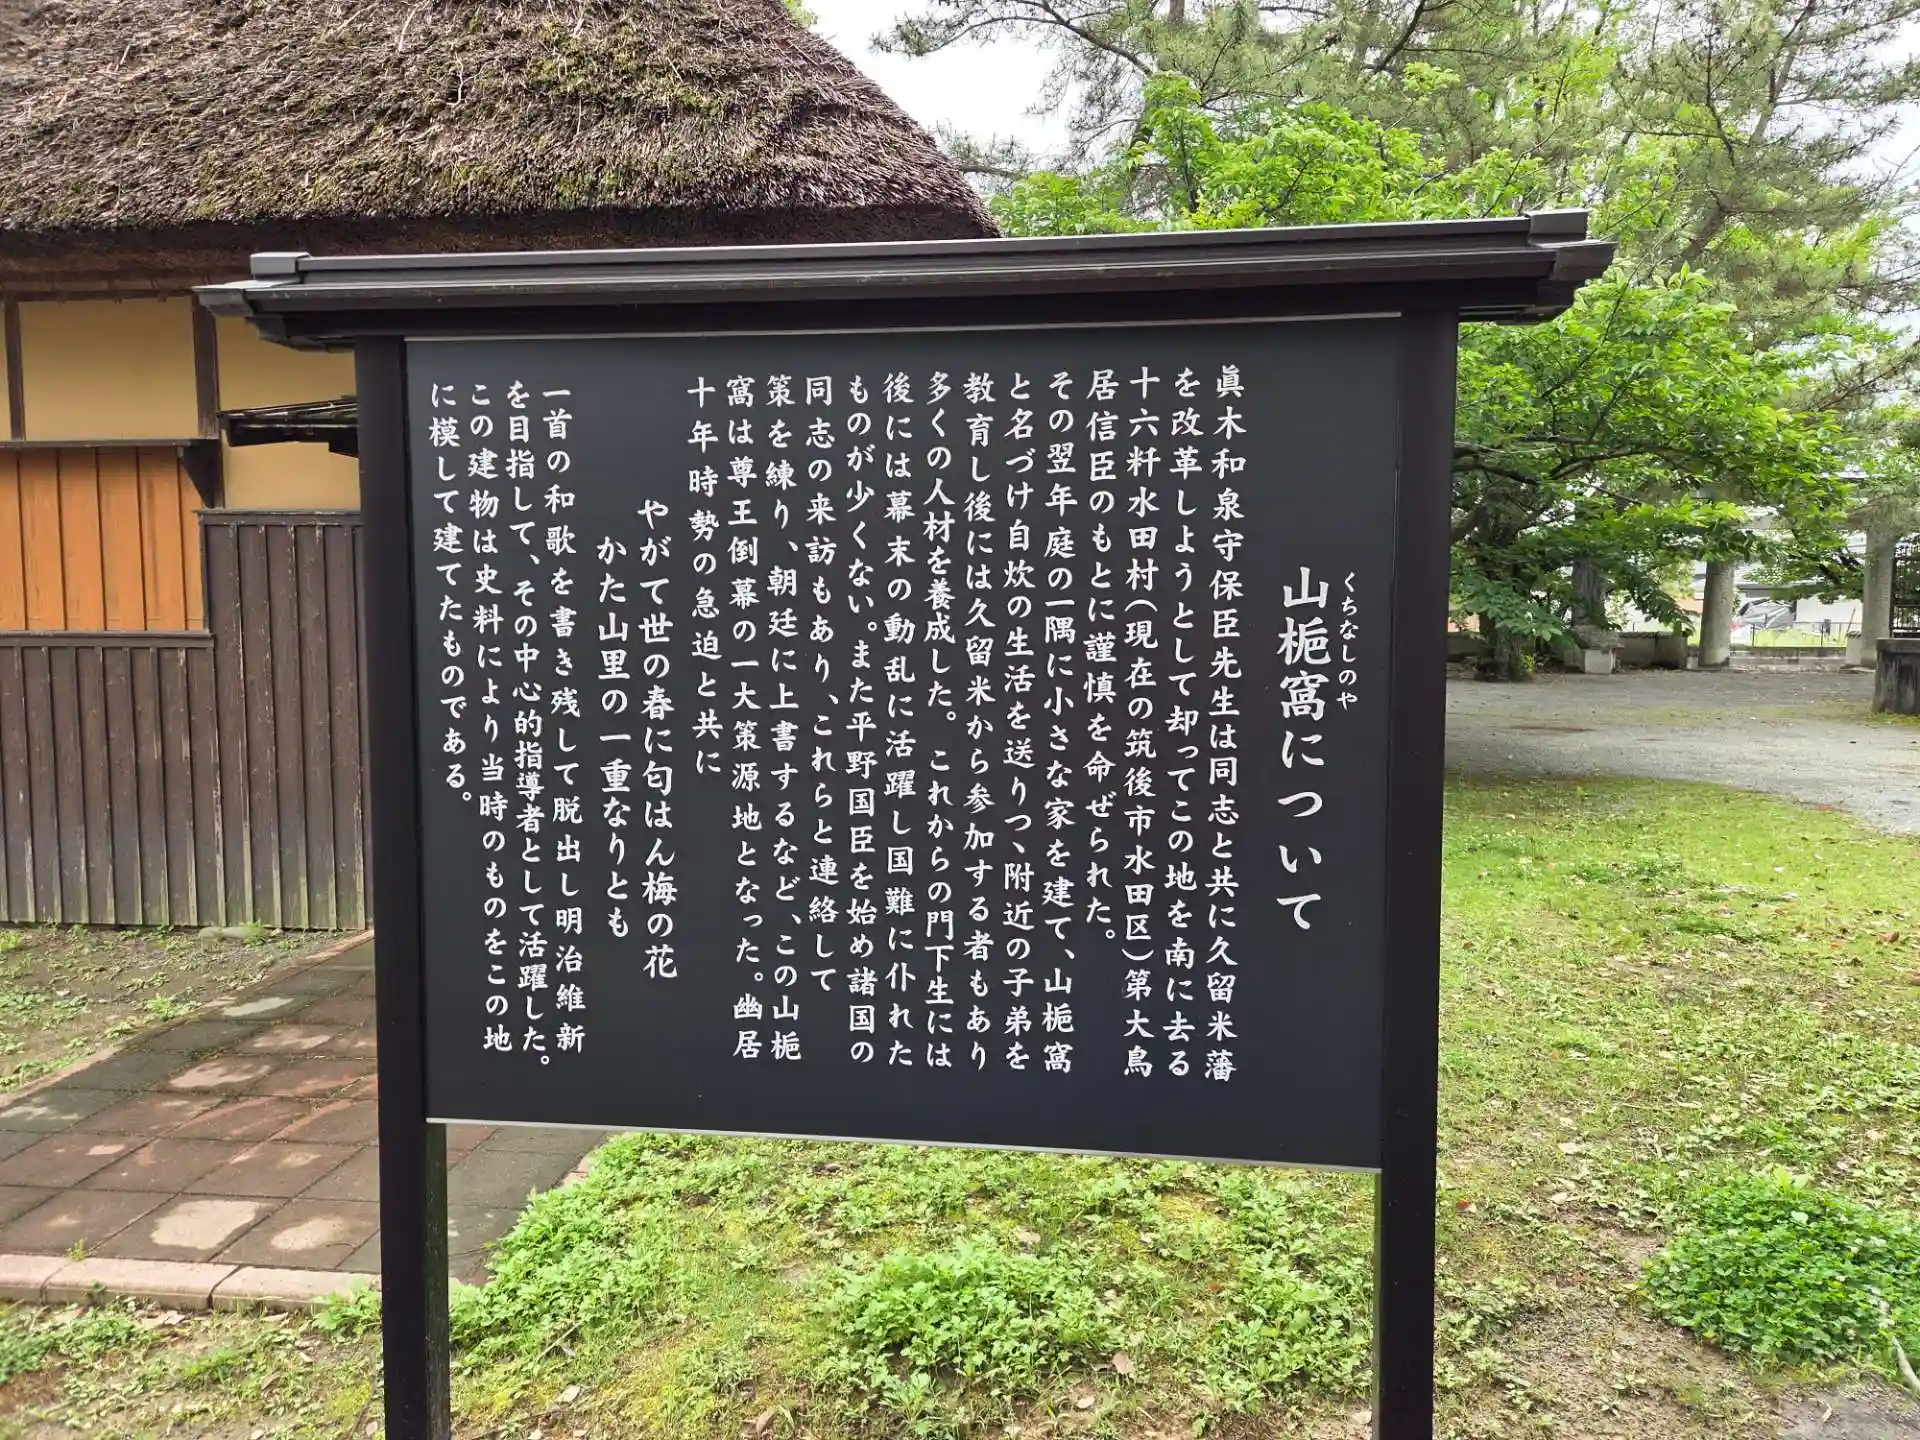 山梔窩について
くちなしのや
眞木和泉守保臣先生は同志と共に久留米藩
を改革しようとして却ってこの地を南に去る
十六粁水田村(現在の筑後市水田区)第大鳥
居信臣のもとに謹慎を命ぜられた。
その翌年庭の一隅に小さな家を建て、山梔窩
と名づけ自炊の生活を送りつ、附近の子弟を
教育し後には久留米から参加する者もあり
多くの人材を養成した。これからの門下生には
後には幕末の動乱に活躍し国難に仆れた
ものが少くない。また平野国臣を始め諸国の
同志の来訪もあり、これらと連絡して
策を練り、朝廷に上書するなど、この山梔
窩は尊王倒幕の一大策源地となった。幽居
十年時勢の急迫と共に
やがて世の春に匂はん梅の花
かた山里の一重なりとも
一首の和歌を書き残して脱出し明治維新
を目指して、その中心的指導者として活躍した。
この建物は史料により当時のものをこの地
に模して建てたものである。